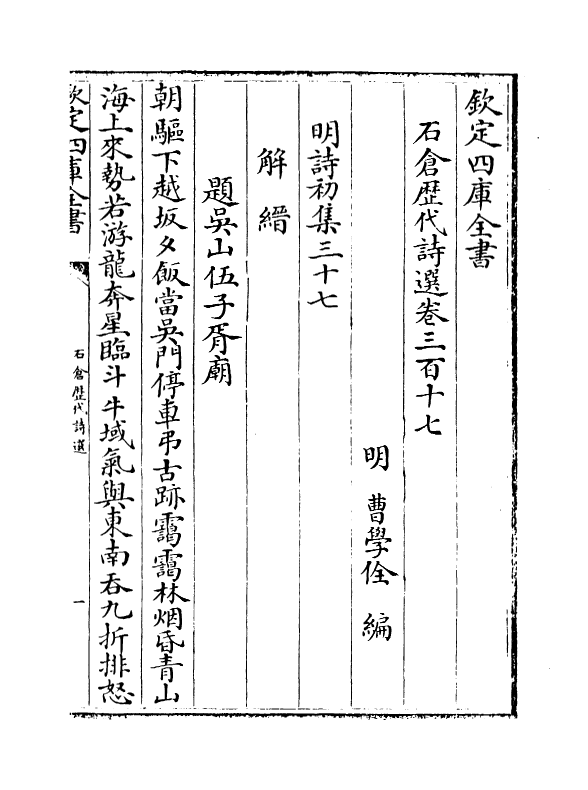 欽定四庫全書
石倉歷代詩選卷三百十七
明 曹學佺 編
明詩初集三十七
解縉
題吳山伍子胥廟
朝驅下越坂夕飯當吳門停車弔古跡靄靄林烟昏青山
海上來勢若游龍奔星臨斗牛域氣與東南吞九折排怒
欽定四庫全書
石倉歷代詩選
一